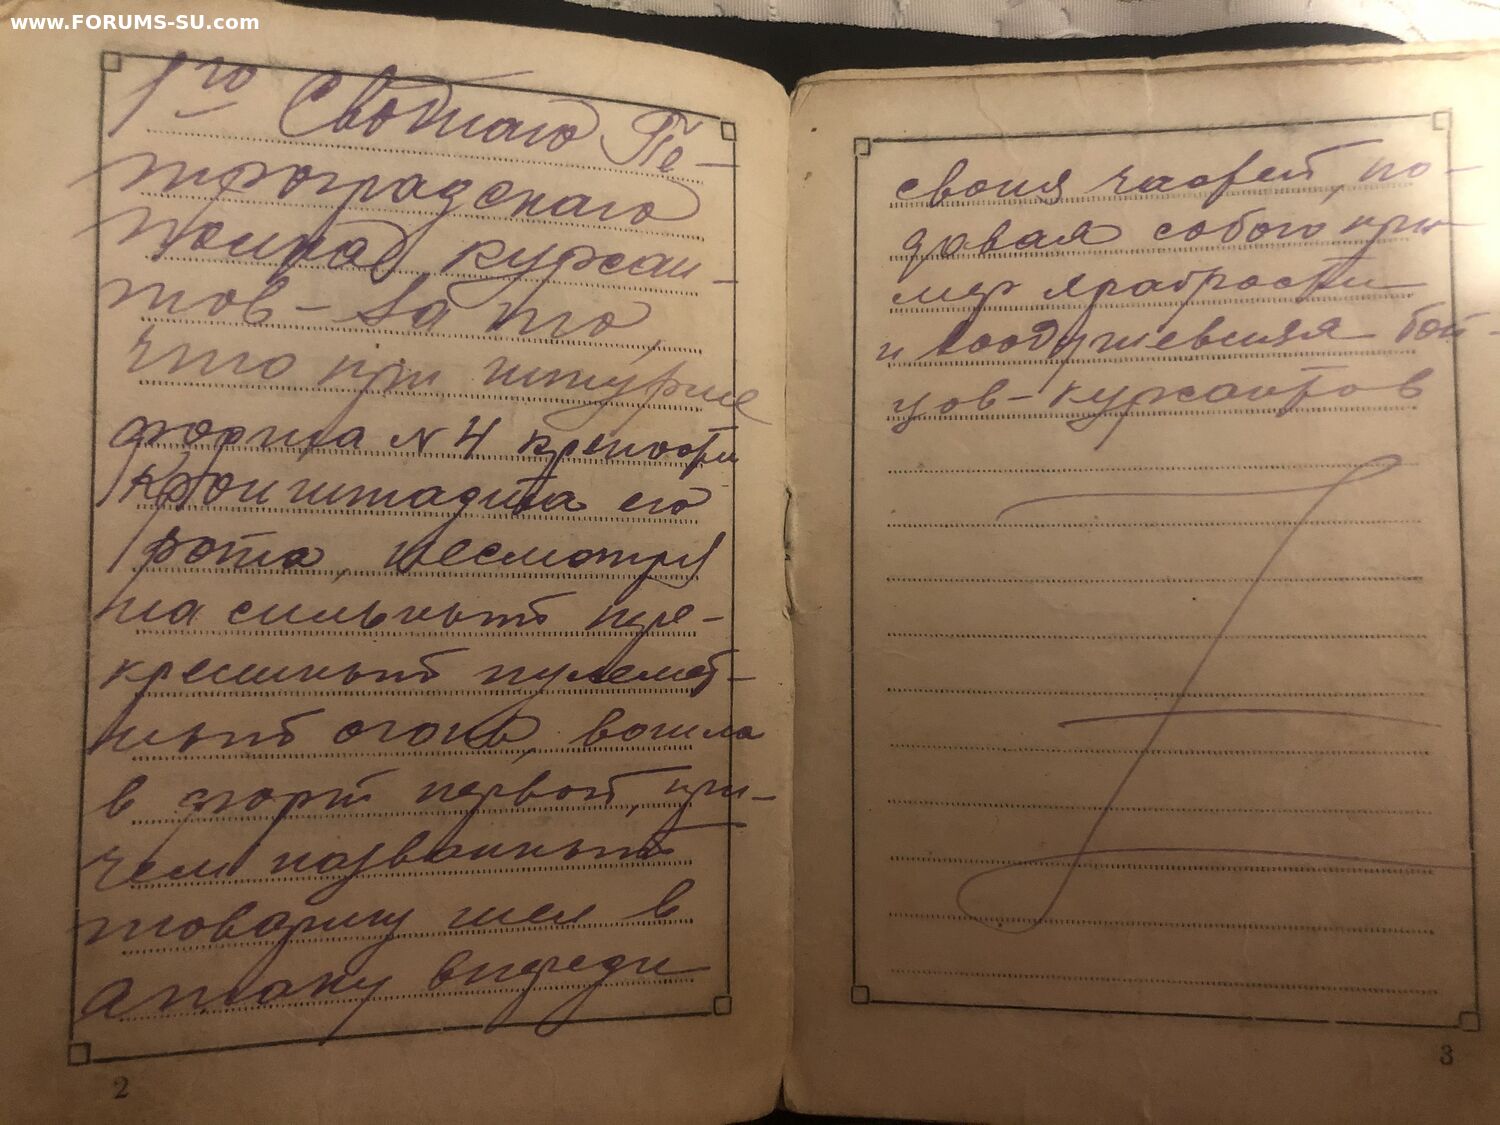 www.FORUMS-SU.com
1го Сводного Пе-
троградского
полка курсан-
тов - за то,
что при штурме
форта №4 крепости
Кронштадта его
рота, несмотря
на сильный пере-
крестный пулемет-
ный огонь, вошла
в форт первой, при-
чем названный
товарищ шел в
атаку впереди
2
своих частей, по-
давая собою при-
мер храбрости
и воодушевляя бой-
цов-курсантов
3